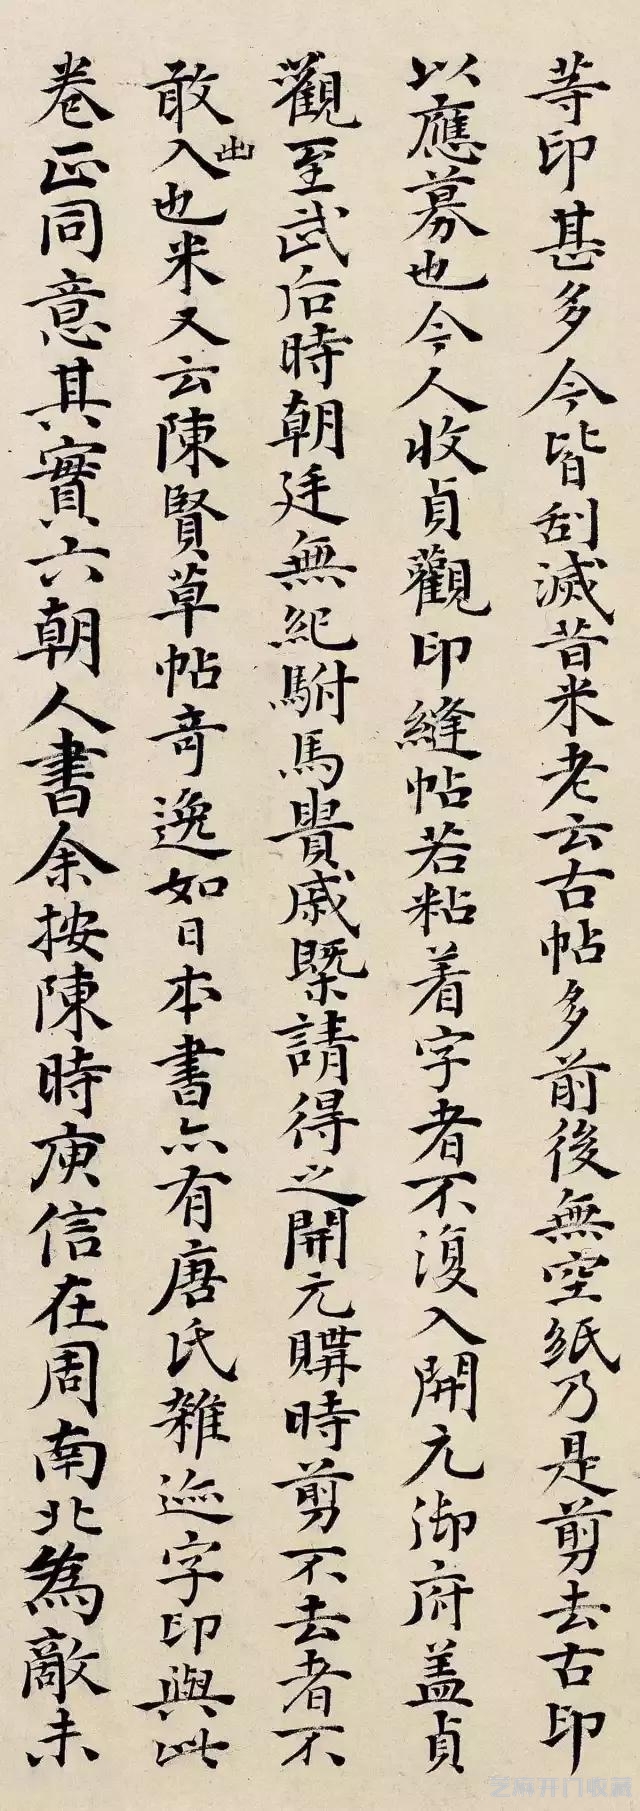 等印甚多今皆刮滅昔米老云古帖多前後無空紙乃是剪去古印
以應募也今人收貞觀印縫帖若粘着字者不復入開元御府盖貞
觀至武后時朝廷無紀駙馬貴戚曁請得之開元購時剪不去者不
敢出入也米又云陳賢草帖奇逸如日本書亦有唐氏雜迹字印與此
卷正同意其實六朝人書余按陳時庾信在周南北為敵未
艺麻开门收藏